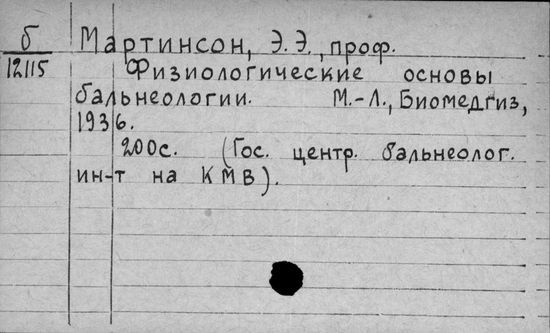 б
12115
Мартинсон, Э.Э., проф.
Физиологические основы
бальнеологии. М.-Л., Биомедгиз,
1936.
200с. (Гос. центр. бальнеолог.
ин-т на КМВ).